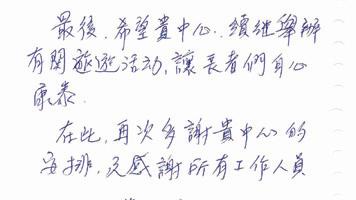 最後，希望貴中心，續继舉辦
有関旅遊活动，讓長者們身心
康泰．
在此，再次多謝貴中心的
安排，及感謝所有工作人員